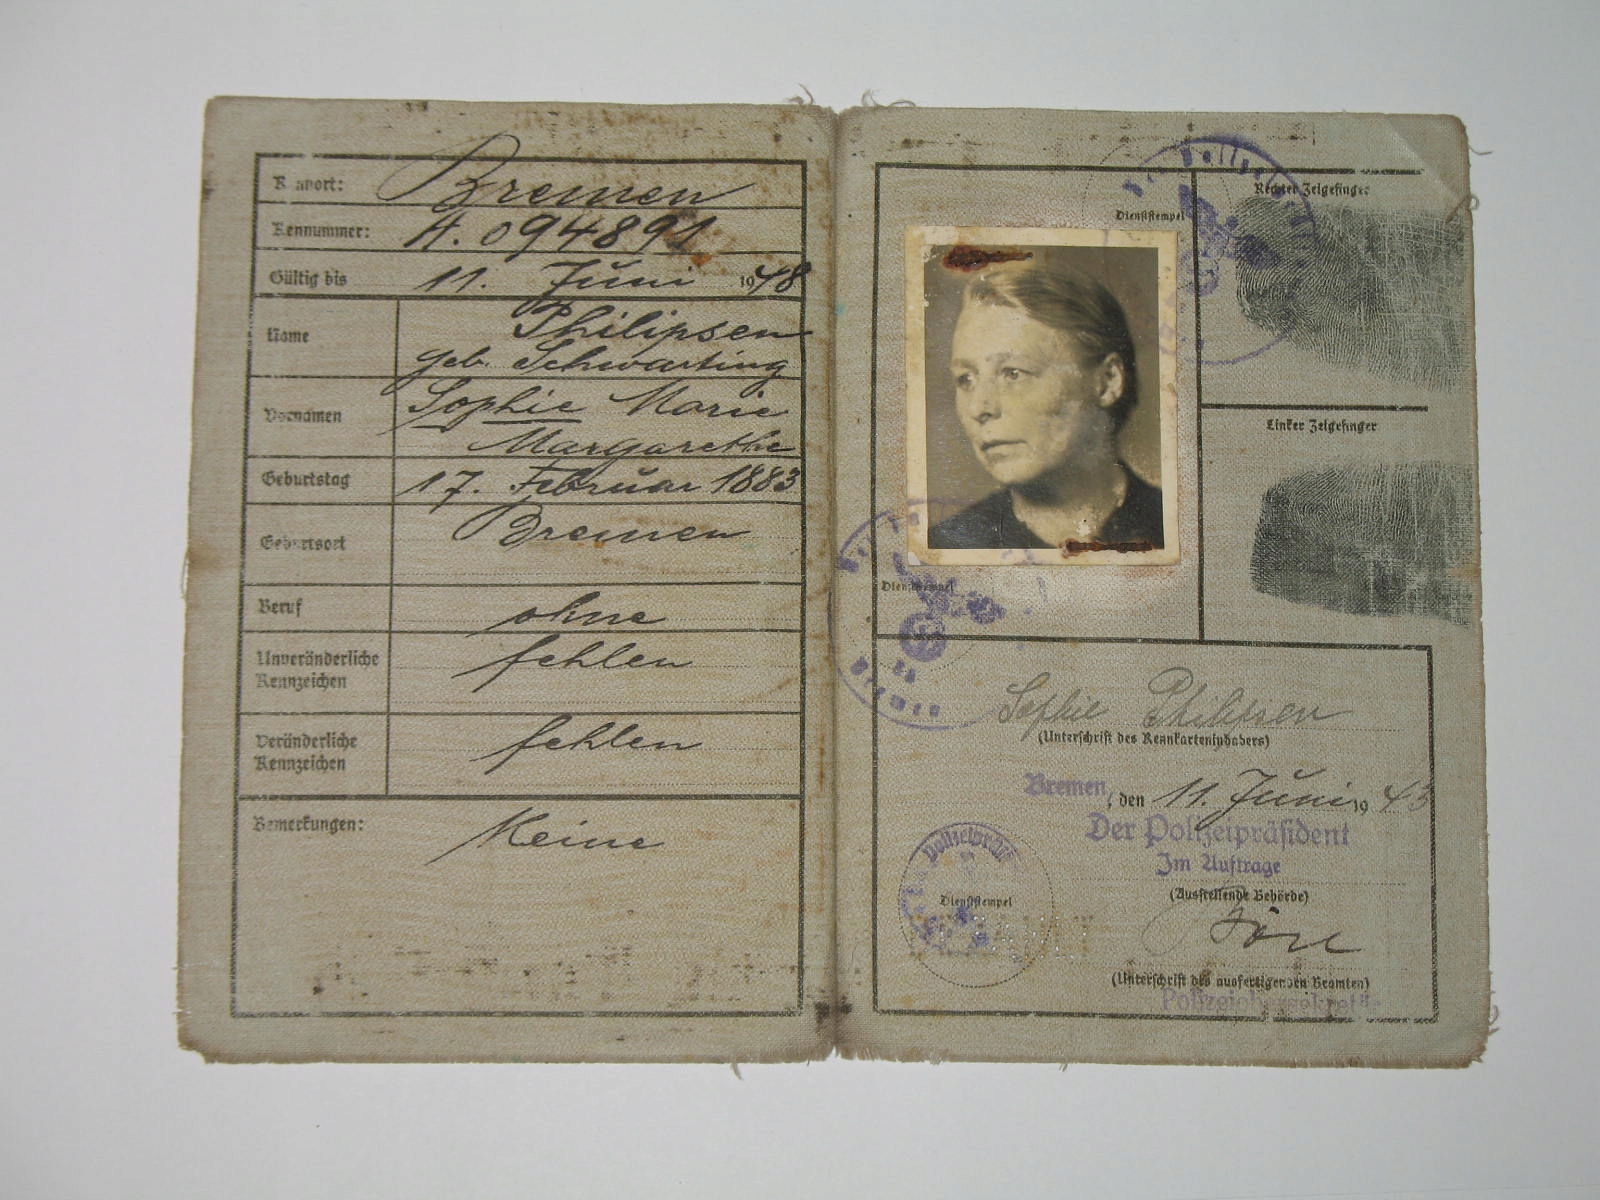 Kennort: Bremen
Kennnummer: A. 094891
Gültig bis 11. Juni 1948
Name Philipsen
geb. Schwarting
Vornamen Sophie Marie
Margarethe
Geburtstag 17. Februar 1883
Geburtsort Bremen
Beruf ohne
Unveränderliche
Kennzeichen fehlen
Veränderliche
Kennzeichen fehlen
Bemerkungen: Keine
Dienststempel
Rechter Zeigefinger
Linker Zeigefinger
Dienststempel
Bremen
Sophie Philipsen
(Unterschrift des Kennkarteninhabers)
Bremen, den 11. Juni 1943
Der Polizeipräsident
Im Auftrage
(Ausstellende Behörde)
Dienststempel
(Unterschrift des ausfertigenden Beamten)
Polizeiobersekretär